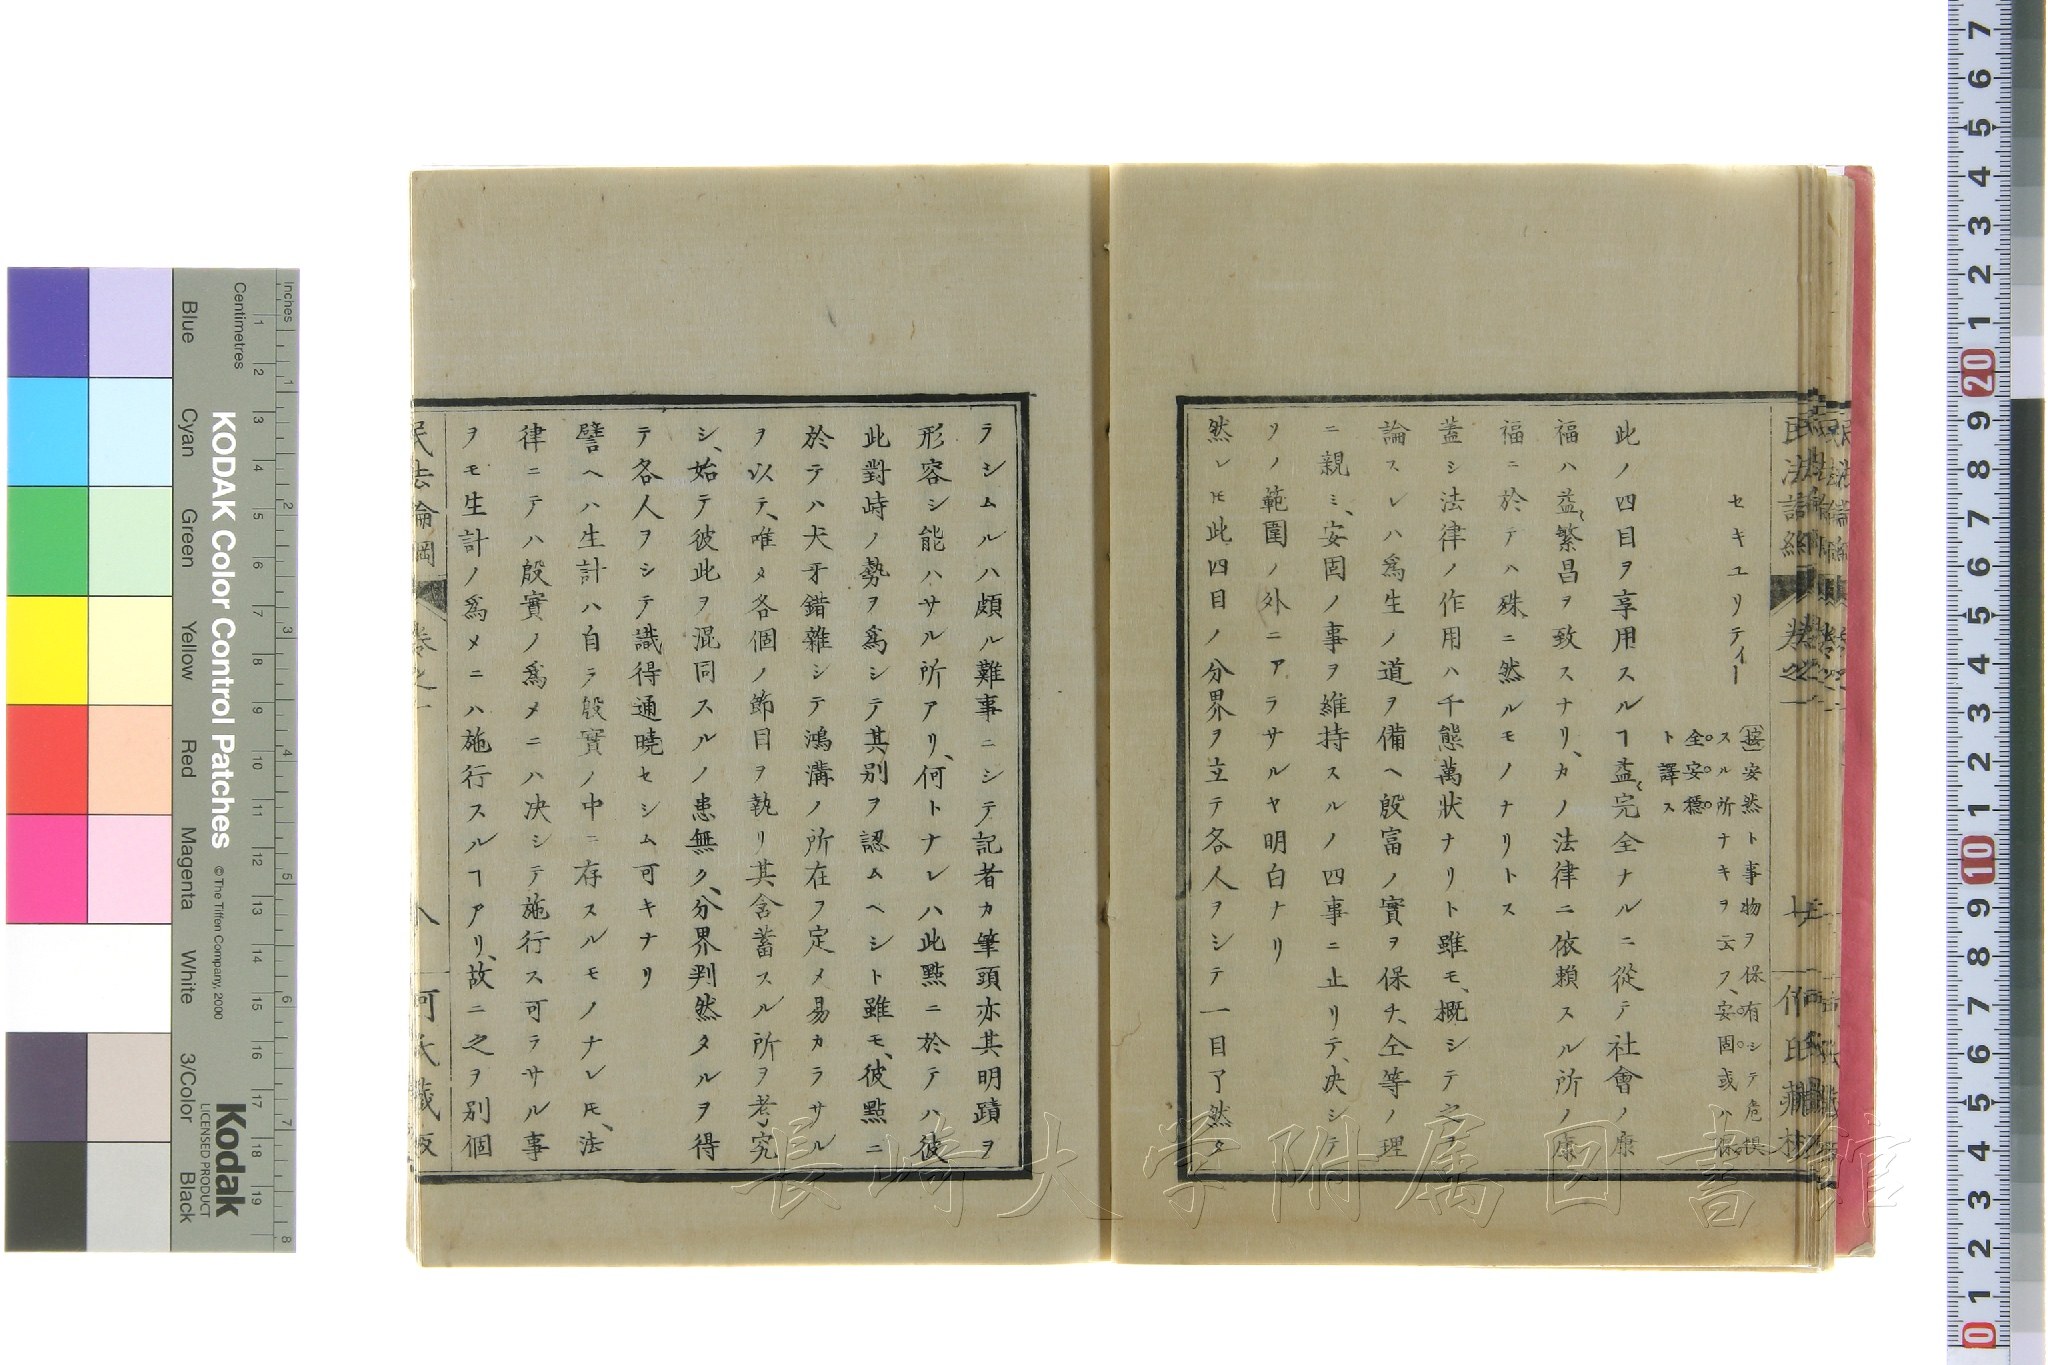 セキユリティー
按安然ト事物ヲ保有シテ危惧
スル所ナキヲ云フ、安固或ハ保
全安穏
ト譯ス
此ノ四目ヲ享用スルヿ益〻完全ナルニ從テ社會ノ康
福ハ益〻繁昌ヲ致スナリ、カノ法律ニ依賴スル所ノ康
福ニ於テハ殊ニ然ルモノナリトス
蓋シ法律ノ作用ハ千態萬狀ナリト雖モ、概シテ之ヲ
論スレハ爲生ノ道ヲ備ヘ殷富ノ實ヲ保チ、仝等ノ理
ニ親ミ、安固ノ事ヲ維持スルノ四事ニ止リテ、决シテ
ソノ範圍ノ外ニアラサルヤ明白ナリ
然レ𪜈此四目ノ分界ヲ立テ各人ヲシテ一目了然タ
ラシムルハ頗ル難事ニシテ記者カ筆頭亦其明蹟ヲ
形容シ能ハサル所アリ、何トナレハ此點ニ於テハ彼
此對峙ノ勢ヲ爲シテ其別ヲ認ムヘシト雖モ、彼點ニ
於テハ犬牙錯雜シテ鴻溝ノ所在ヲ定メ易カラサル
ヲ以テ、唯タ各個ノ節目ヲ執リ其含蓄スル所ヲ考究
シ、始テ彼此ヲ混同スルノ患無ク、分界判然タルヲ得
テ各人ヲシテ識得通曉セシム可キナリ
譬ヘハ生計ハ自ラ殷實ノ中ニ存スルモノナレ𪜈、法
律ニテハ殷實ノ爲メニハ决シテ施行ス可ラサル事
ヲモ生計ノ爲メニハ施行スルヿアリ、故ニ之ヲ別個
民法論綱 卷之一 八 何氏藏板
KODAK Color Control Patches
© The Tiffen Company, 2000
Kodak
LICENSED PRODUCT
Inches
Centimetres
Blue Cyan Green Yellow Red Magenta White 3/Color Black
長崎大学附属図書館